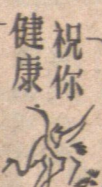 祝你
健康